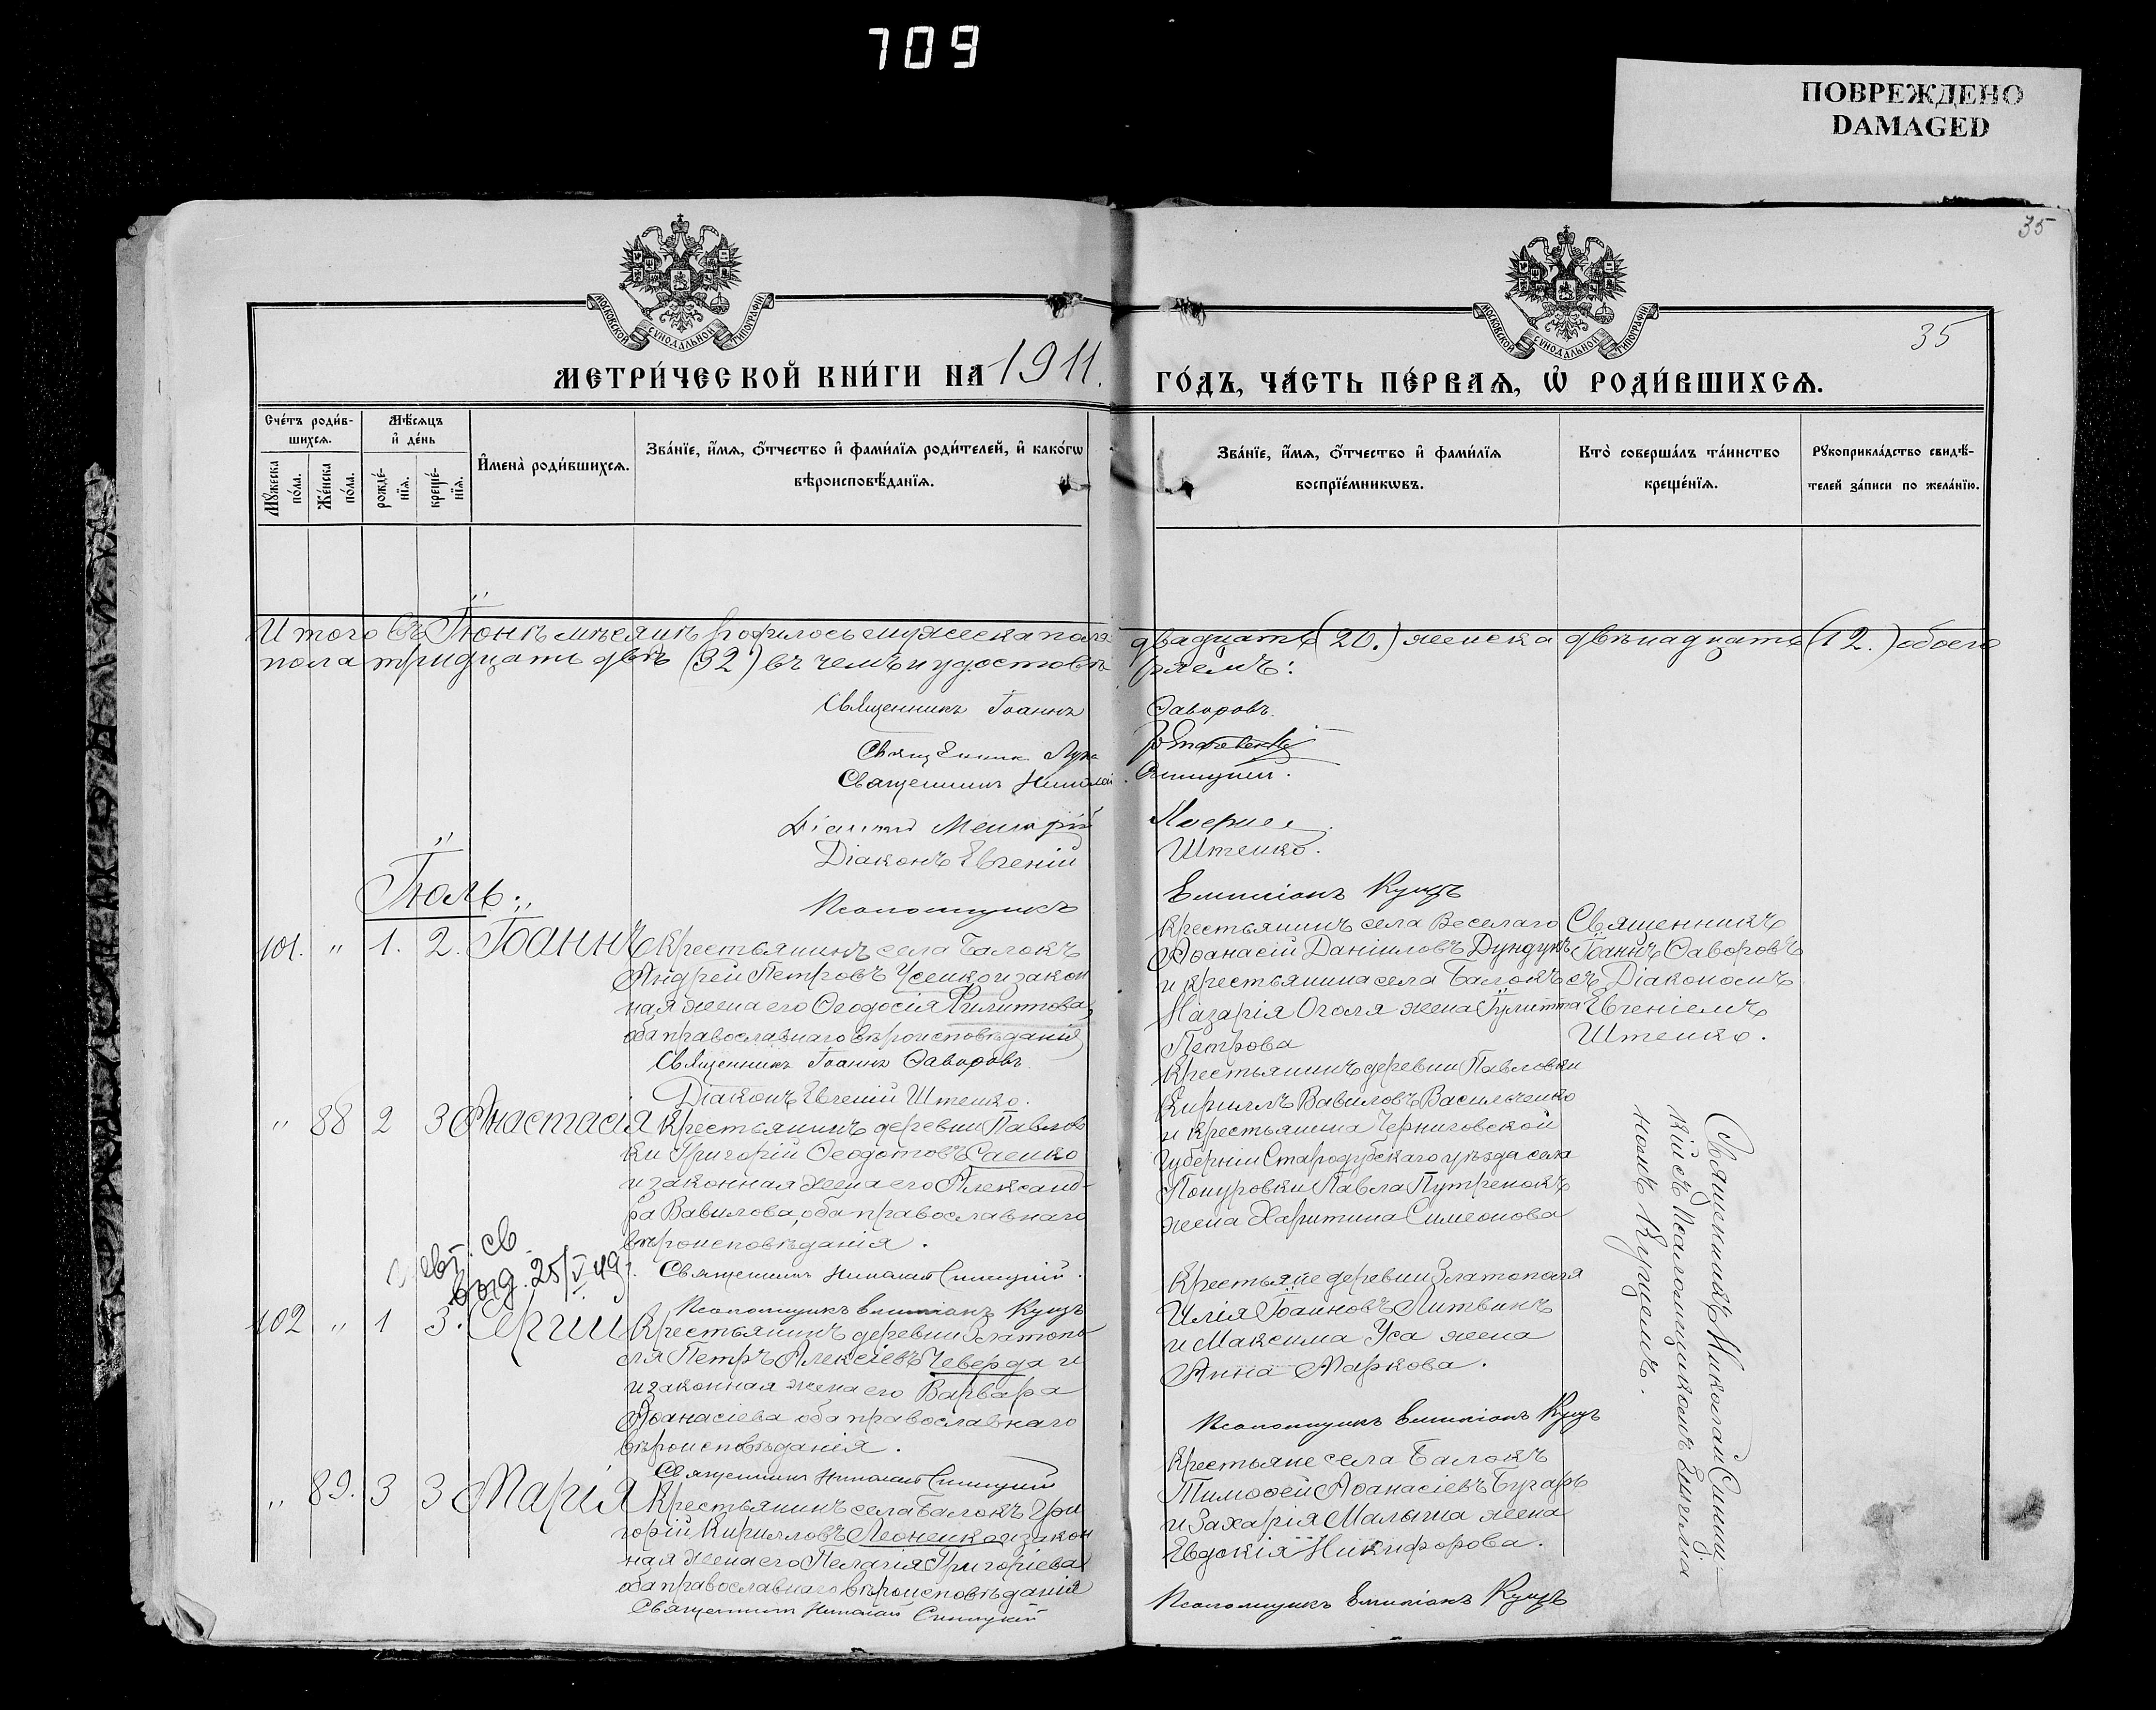 709
ПОВРЕЖДЕНО
DAMAGED
35
35
МОСКОВСКОЙ СѴНОДАЛЬНОЙ ТИПОГРАФІИ
МОСКОВСКОЙ СѴНОДАЛЬНОЙ ТИПОГРАФІИ
МЕТРИ́ЧЕСКОЙ КНИ́ГИ НА 1911.
ГО́ДЪ, ЧА́СТЬ ПЕ́РВАѦ, Ѡ҆ РОДИ́ВШИХСѦ.
Сче́тъ роди́в-
шихсѧ.
Мꙋ́жеска
по́ла.
Же́нска
по́ла.
Мѣ́сѧцъ
и҆ де́нь
рожде́-
нїѧ.
креще́-
нїѧ.
И҆мена̀ роди́вшихсѧ.
Зва́нїе, и҆́мѧ, ѻ҆́тчество и҆ фами́лїѧ роди́телей, и҆ како́гѡ
вѣроисповѣ́данїѧ.
Зва́нїе, и҆́мѧ, ѻ҆́тчество и҆ фами́лїѧ
воспрїе́мникѡвъ.
Кто̀ соверша́лъ та́инство
креще́нїѧ.
Рꙋкоприкла́дство свидѣ́-
телей за́писи по жела́нїю.
Итого въ Іюнѣ мѣсяцѣ родилось мужеска пола двадцать (20.) женска двѣнадцать (12.) обоего
пола тридцать двѣ (32) въ чемъ и удостовѣряемъ:
Священникъ Іоаннъ Ѳаворовъ.
Священникъ Лука
Священникъ Николай Синицкій.
Діаконъ
Діаконъ Евгеній Штенко.
Псаломщикъ Емиліанъ Куцъ
Іюль:
101. " 1. 2. Іоаннъ
Крестьянинъ села Балокъ
Андрей Петровъ Усенко и закон
ная жена его Ѳеодосія Филиппова,
оба православнаго вѣроисповѣданія
Священникъ Іоаннъ Ѳаворовъ.
Діаконъ Евгеній Штенко.
Крестьянинъ села Веселаго
Аѳанасій Даніиловъ Дундукъ
и крестьянина села Балокъ
Назарія Оголя жена Іулитта
Петрова
Священникъ
Іоаннъ Ѳаворовъ
съ Діакономъ
Евгеніемъ
Штенко.
" 88 2 3 Анастасія
Крестьянинъ деревни Павлов
ки Григорій Ѳеодотовъ Саенко
и законная жена его Александ-
ра Вавилова, оба православнаго
вѣроисповѣданія.
Священникъ Николай Синицкій.
Псаломщикъ Емиліанъ Куцъ
Крестьянинъ деревни Павловки
Кириллъ Вавиловъ Васильченко
и крестьянина Черниговской
Губерніи Стародубскаго уѣзда села
Понуровки Павла Путренокъ
жена Харитина Симеонова
Священникъ Николай Синиц-
кій съ Псаломщикомъ Емилиа
номъ Куцемъ.
св
выд. 25/V 49 г.
102 " 1 3. Сергій
Крестьянинъ деревни Златопо-
ля Петръ Алексіевъ Чеверда и
и законная жена его Варвара
Аѳанасіева оба православнаго
вѣроисповѣданія.
Священникъ Николай Синицкій
Крестьяне деревни Златополя
Илія Іоанновъ Литвинъ
и Максима Уса жена
Анна Маркова.
Псаломщикъ Емиліанъ Куцъ
" 89. 3 3 Марія
Крестьянинъ села Балокъ Гри
горій Кирилловъ Леоненко и закон
ная жена его Пелагія Григоріева
оба православнаго вѣроисповѣданія
Священникъ Николай Синицкій
Крестьяне села Балокъ
Тимоѳей Аѳанасіевъ Бугаръ
и Захарія Малыша жена
Евдокія Никифорова.
Псаломщикъ Емиліанъ Куцъ